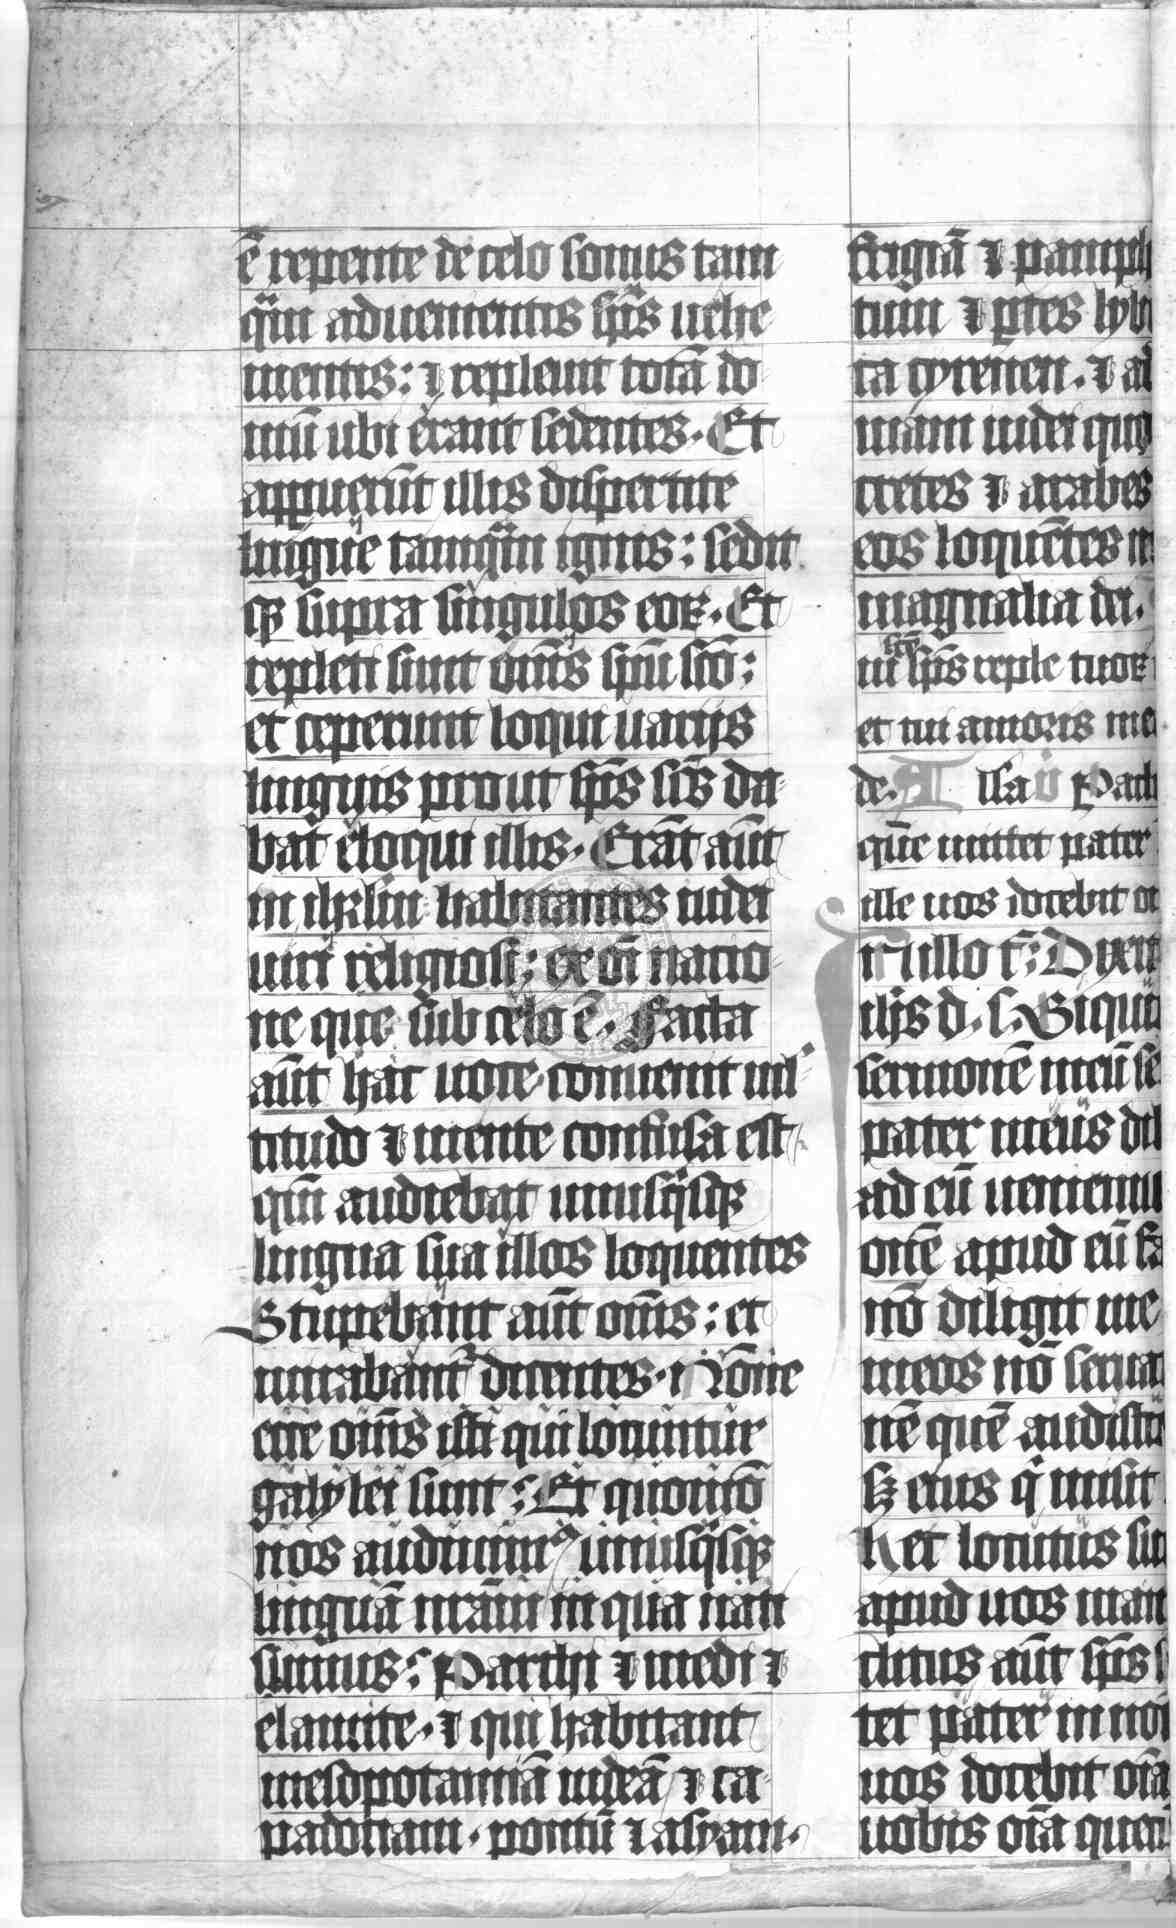 ē repente de celo sonus tam
q̄m aduenientis sp̄s uehe
mentis: ⁊ repleuit totā do
mū ubi erant sedentes. Et
apparuerūt illis dispertite
lingue tamq̄m ignis: sedit
q; supra singulos eoꝝ. Et
repleti sunt om̄s sp̄u sc̄o:
et ceperunt loqui uarijs
linguis prout sp̄s sc̄s da-
bat eloqui illis. Erāt aūt
in ihrl̄m habitantes iudei
uiri religiosi: ex oī natio-
ne que sub celo ē. Facta
aūt hac uoce conuenit ml̄-
titudo ⁊ mente confusa est
qm̄ audiebat unusq̄sq;
lingua sua illos loquentes
Stupebant aūt om̄s: et
mirabant᷑ dicentes. Nōne
ecce om̄s isti qui locuntur
galylei sunt: Et quom̄o
nos audiuimꝰ unusq̄sq;
linguā nr̄am in qua nati
sumus: Parthi ⁊ medi ⁊
elamite. ⁊ qui habitant
mesopotamiā iudeā ⁊ ca-
padociam. pontū ⁊ asyam.
frigiā ⁊ pamph
tum ⁊ ꝑtes lybi
ca cyrenen. ⁊ ad
uam iudei quo
cretes ⁊ arabes
eos loquētes n
magnalia dei.
ni sc̄e sp̄s reple tuoꝝ
et tui amoris
de. A lla ū Parac
quē mittet pater
ille uos docebit o
In illo t̄: Dixit
ih̄s d. s. Siquis
sermonē meū se
pater meus dil
ad eū ueniemu
onē apud eū fa
nō diligit me
meos nō seruat
nē quē audisti
sꝫ eius q̄ misit
Hec locutus su
apud uos man
clitus aūt sp̄s
tet pater in no
uos docebit oīa
uobis oīa quec